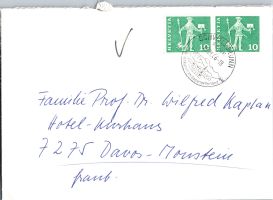 HELVETIA 10 HELVETIA 10
Familie Prof. Dr. Wilfred Kaplan
Hotel-Kurhaus
7275 Davos-Monstein
Graub.